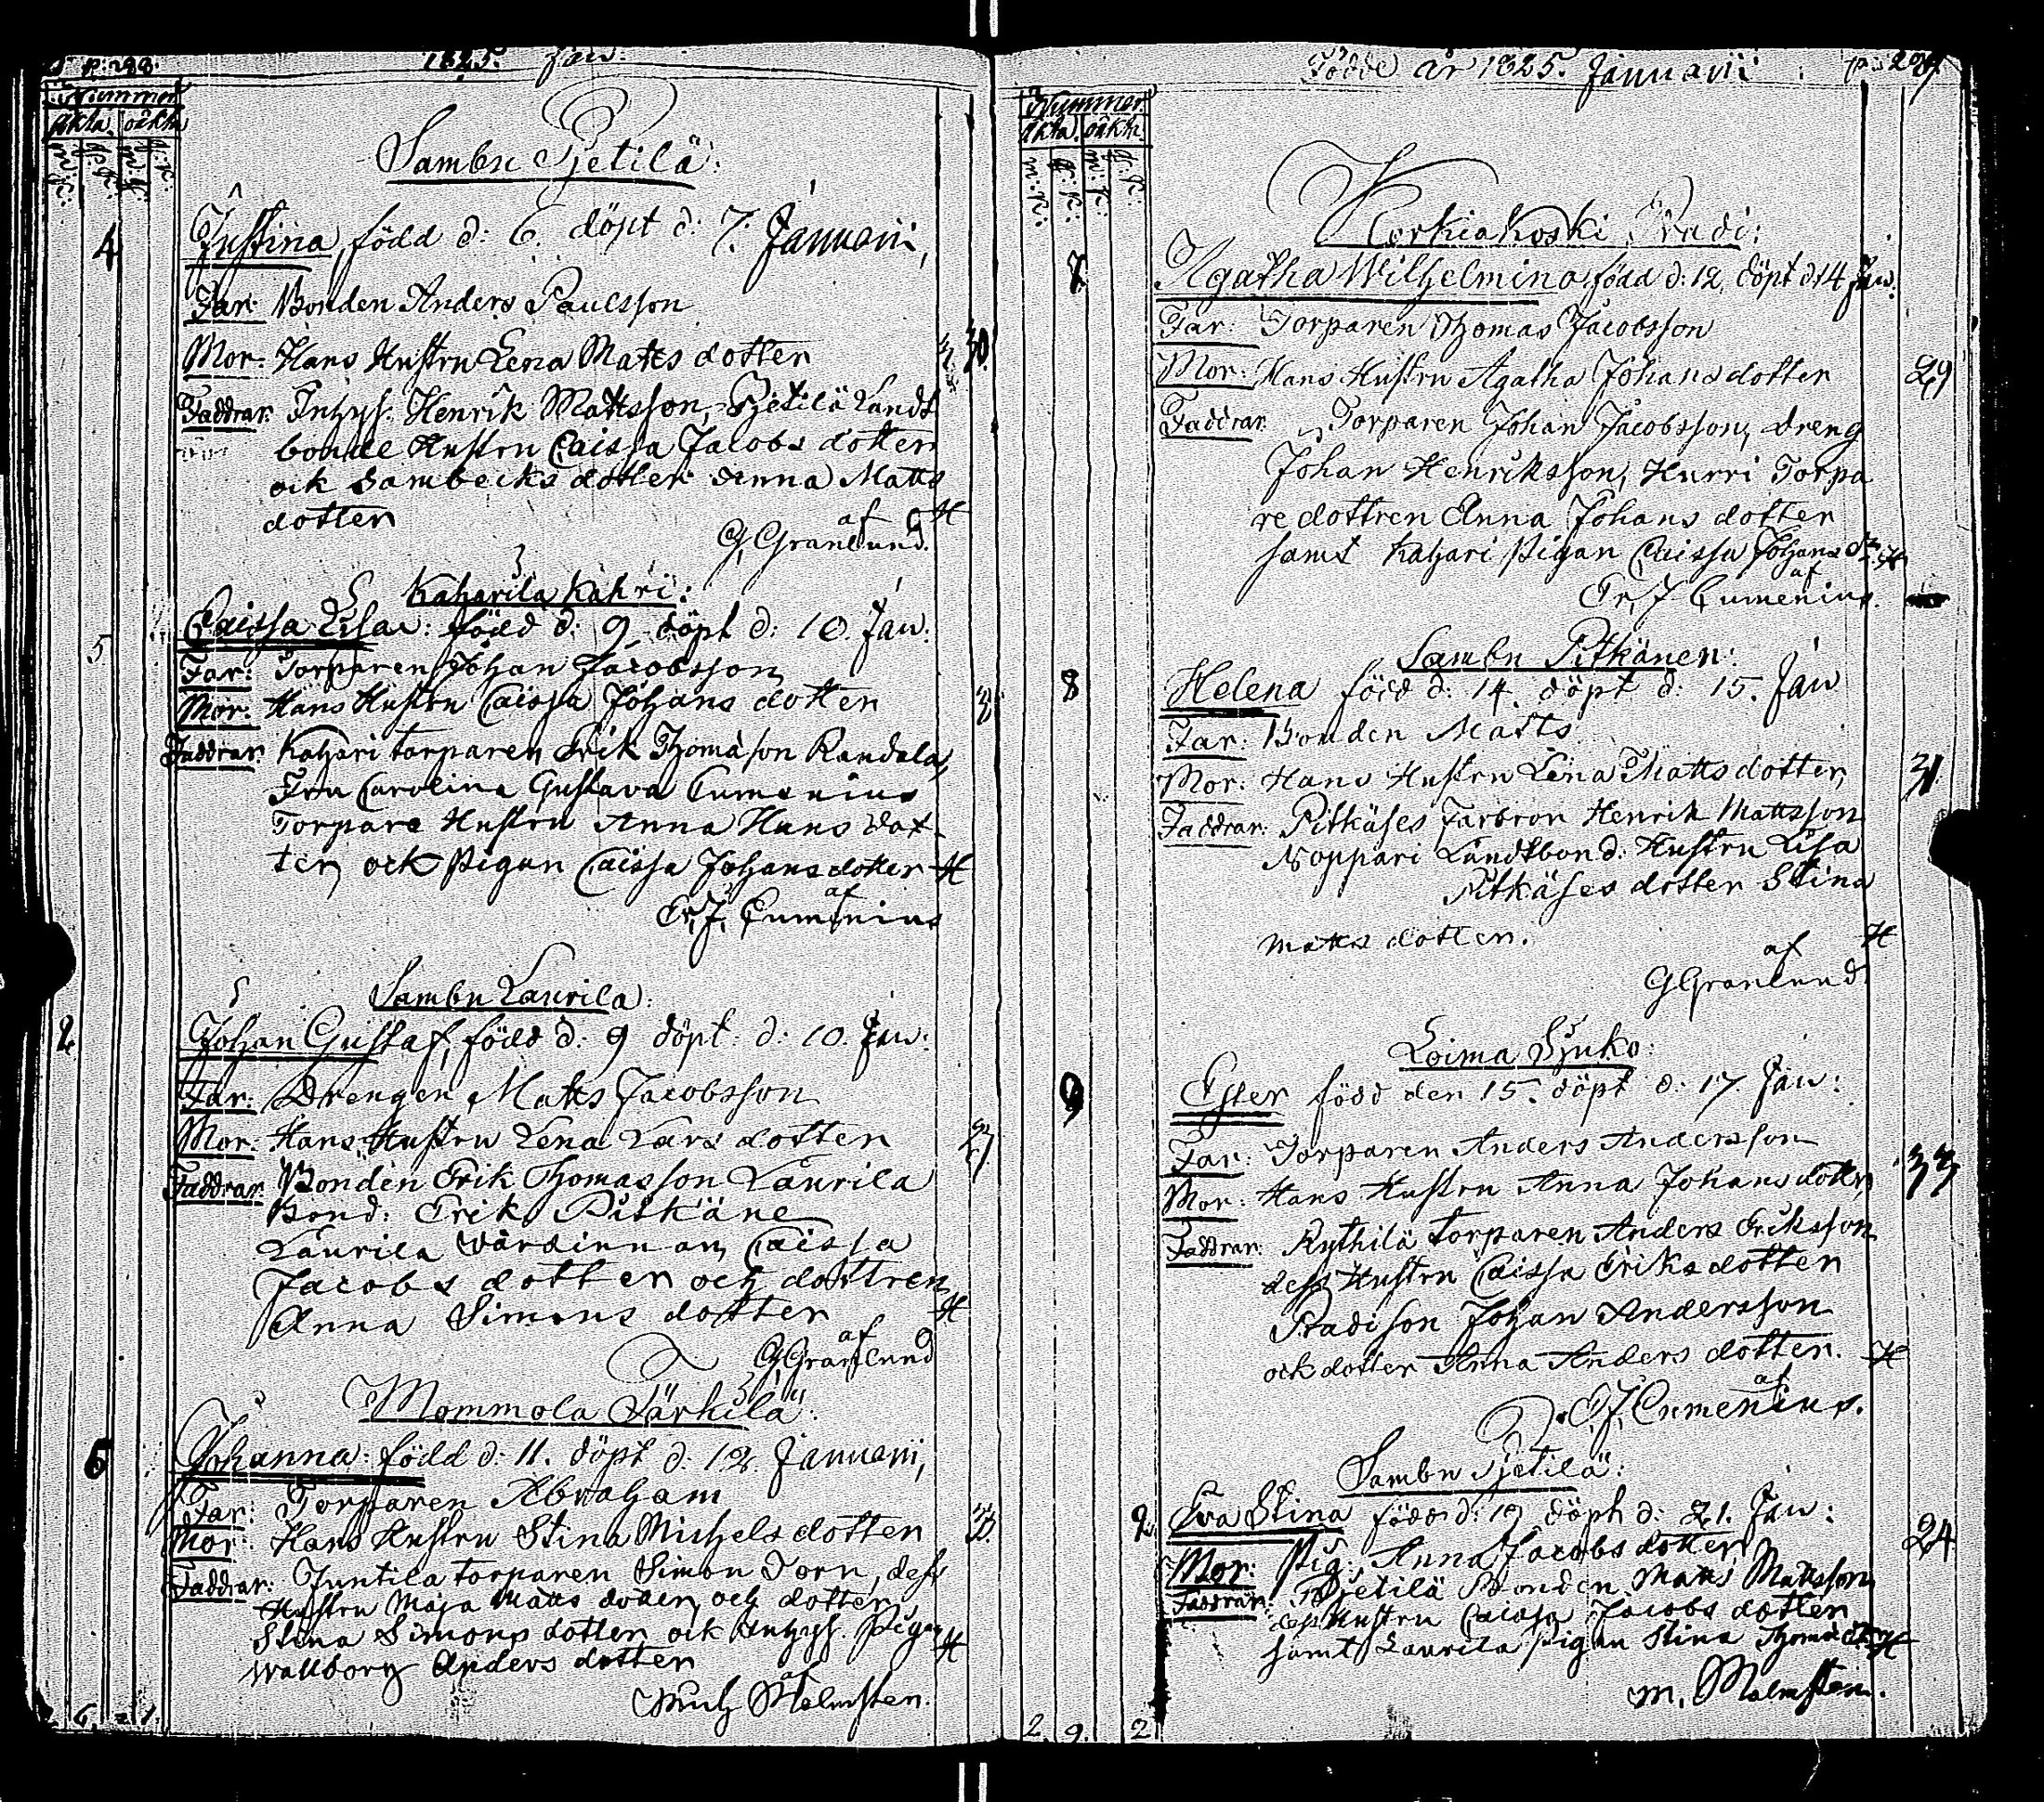 p: 288.
1825. Jan:
Nummer
ächta. oächta
m:k: q:k: m:k: q:k:
Sambu Pjetilä:
4 Justina, född d: 6. döpt d: 7. Januarii,
Far: Bonden Anders Paulsson
Mor: Hans Hustru Lena Matts dotter 30.
Faddrar: Inhys. Henrik Mattsson, Pjetilä Landt
bonde Hustru Caissa Jacobs dotter
ock Sambecks dotter Anna Matts
dotter H
af
G, Granlund.
Kaharila Kahri:
5 Caissa Lisa: född d: 9 döpt d: 10. Jan:
Far: Torparen Johan Jacobsson
Mor: Hans Hustru Caissa Johans dotter
Faddrar: Kahari torparen Erik Thomason Randala,
Fru Carolina Gustava Cumenius
Torpare Hustru Anna Hans dot-
ter, ock Pigan Caissa Johans dotter H
af
Er, J, Cumenius
Sambu Laurila:
2 Johan Gustaf, född d: 9 döpt: d: 10. Jan:
Far: Drengen Matts Jacobsson
Mor: Hans Hustru Lena Lars dotter 27
Faddrar: Bonden Erik Thomasson Laurila
Bond: Erik Pitkäne
Laurila Värdinnan, Caissa
Jacobs dotter och dottren
Anna Simons dotter H
af
G Granlund
Mommola Särkilä:
6 Johanna: född d: 11. döpt d: 12. Januarii,
Far: Torparen Abraham
Mor: Hans Hustru Stina Michels dotter
Faddrar: Juntila torparen Simon Jorn, dess
Hustru Maja Matts dotter, och dotter
Stina Simons dotter ock Inhys. Pigan H
Wallborg Anders dotter
af
Mich Malmsten.
6. 1.
Födde år 1825. Januarii p: 289.
Nummer.
ächta. oächt.
m:k: q:k: m:k: q:k:
Korkiakoski Pradi:
7 Agatha Wilhelmina, född d: 12, döpt d: 14 Jan:
Far: Torparen Thomas Jacobsson
Mor: Hans Hustru Agatha Johans dotter 29
Faddrar: Torparen Johan Jacobsson, Dreng
Johan Henriksson, Hurri Torpa
re dottren Anna Johans dotter
samt Kahari Pigan Caissa Johans dr. H
af
Er, J Cumenius.
Sambu Pitkänen:
8 Helena född d: 14. döpt d: 15. Jan
Far: Bonden Matts
Mor: Hans Hustru Lena Matts dotter, 31
Faddrar: Pitkäses Farbror Henrik Mattsson
Noppari Landtbond: Hustru Lisa
Pitkäses dotter Stina
Matts dotter. H
af
G Granlund
Loima Sjuko:
9 Ester född den 15. döpt d: 17. Jan:
Far: Torparen Anders Andersson
Mor: Hans Hustru Anna Johans dotter, 33
Faddrar: Kythilä torparen Anders Eriksson
dess Hustru Caissa Eriks dotter
Pradison Johan Andersson
ock dotter Anna Anders dotter. H
af
J, Cumenius.
Sambu Pjetilä:
2 Eva Stina född d: 19 döpt d: 21. Jan: 24
Mor: Pig: Anna Jacobs dotter
Faddrar: Pjetilä Bonden Matts Mattsson
dess Hustru Caissa Jacobs dotter
samt Laurila pigan Stina Thoma dr. H
M, Malmsten.
2. 9. 2